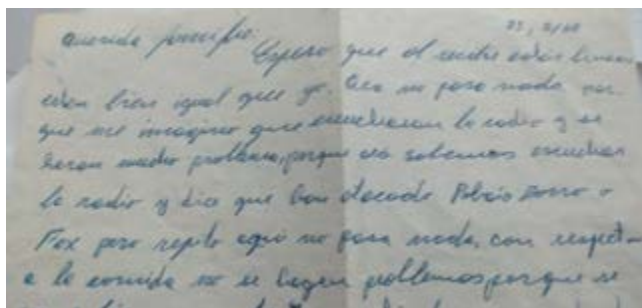 Querida familia:
Espero que al recibir estas lineas
esten bien igual que yo. Aca no pasa nada por
que me imagino que escucharan la radio y se
haran mucho problema, porque aca sabemos escuchar
la radio y dice que han atacado Bahia Zorro o
Fox pero repito aqui no pasa nada, con respecto
a la comida no se hagan problemas porque se